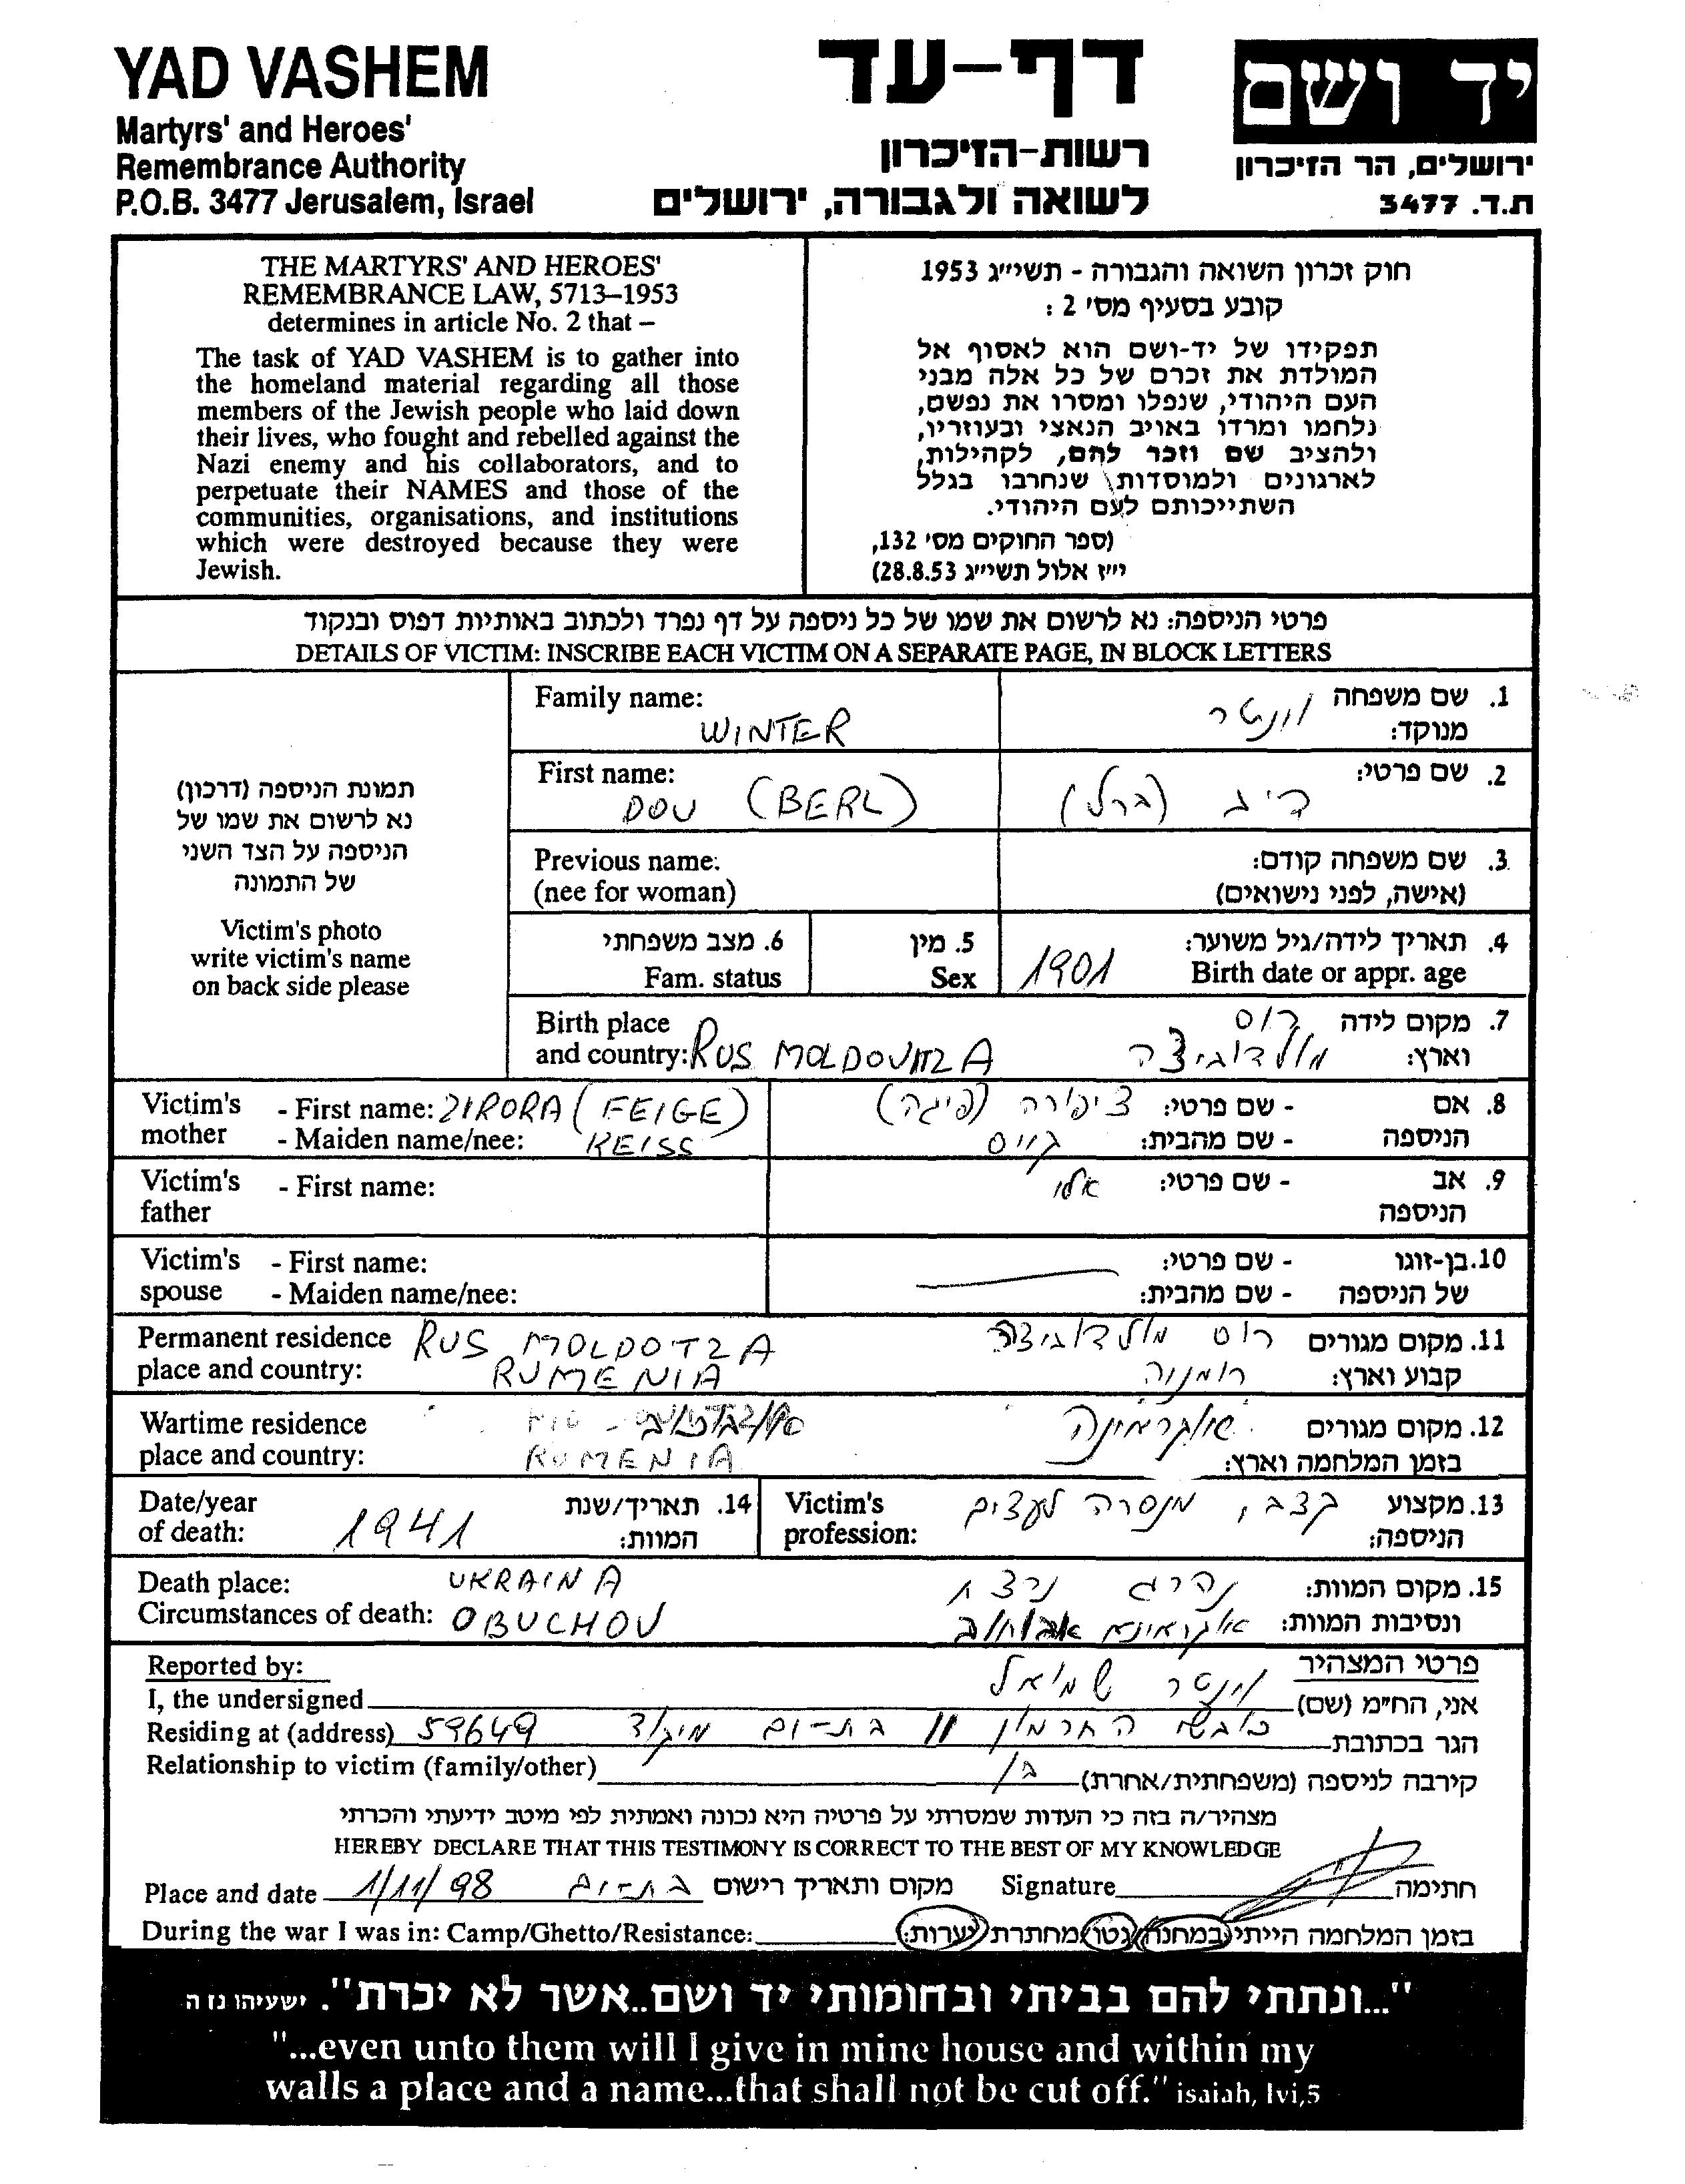 YAD VASHEM
Martyrs' and Heroes'
Remembrance Authority
P.O.B. 3477 Jerusalem, Israel
דף-עד
רשות-הזיכרון
לשואה ולגבורה, ירושלים
יד ושם
ירושלים, הר הזיכרון
ת.ד. 3477
THE MARTYRS' AND HEROES'
REMEMBRANCE LAW, 5713–1953
determines in article No. 2 that –
The task of YAD VASHEM is to gather into
the homeland material regarding all those
members of the Jewish people who laid down
their lives, who fought and rebelled against the
Nazi enemy and his collaborators, and to
perpetuate their NAMES and those of the
communities, organisations, and institutions
which were destroyed because they were
Jewish.
חוק זכרון השואה והגבורה - תשי״ג 1953
קובע בסעיף מס׳ 2 :
תפקידו של יד-ושם הוא לאסוף אל
המולדת את זכרם של כל אלה מבני
העם היהודי, שנפלו ומסרו את נפשם,
נלחמו ומרדו באויב הנאצי ובעוזריו,
ולהציב שם וזכר להם, לקהילות,
לארגונים ולמוסדות שנחרבו בגלל
השתייכותם לעם היהודי.
(ספר החוקים מס׳ 132,
י״ז אלול תשי״ג 28.8.53)
פרטי הניספה: נא לרשום את שמו של כל ניספה על דף נפרד ולכתוב באותיות דפוס ובנקוד
DETAILS OF VICTIM: INSCRIBE EACH VICTIM ON A SEPARATE PAGE, IN BLOCK LETTERS
תמונת הניספה (דרכון)
נא לרשום את שמו של
הניספה על הצד השני
של התמונה
Victim's photo
write victim's name
on back side please
Family name: WINTER
1. שם משפחה מנוקד: ונטר
First name: DOV (BERL)
2. שם פרטי: דוב (ברל)
Previous name:
(nee for woman)
3. שם משפחה קודם:
(אישה, לפני נישואים)
4. תאריך לידה/גיל משוער:
Birth date or appr. age 1901
5. מין
Sex
6. מצב משפחתי
Fam. status
Birth place
and country: RUS MOLDOVITZA
7. מקום לידה רוס
וארץ: מולדוביצה
Victim's mother - First name: ZIRORA (FEIGE)
- Maiden name/nee: REISS
8. אם הניספה - שם פרטי: ציפורה (פיגה)
- שם מהבית: רייס
Victim's father - First name:
9. אב הניספה - שם פרטי: אלי
Victim's spouse - First name:
- Maiden name/nee:
10. בן-זוגו של הניספה - שם פרטי:
- שם מהבית:
Permanent residence RUS MOLDOTZA
place and country: RUMENIA
11. מקום מגורים רוס מולדוביצה
קבוע וארץ: רומניה
Wartime residence
place and country: RUMENIA
12. מקום מגורים
בזמן המלחמה וארץ:
Date/year
of death: 1941
14. תאריך/שנת
המוות:
Victim's
profession:
13. מקצוע קצב, מנסרה לעצים
הניספה:
Death place: UKRAINA
Circumstances of death: OBUCHOV
15. מקום המוות: נהרג נרצח
ונסיבות המוות: אוקראינא אבוחוב
Reported by:
I, the undersigned
פרטי המצהיר
אני, הח״מ (שם) ונטר שמואל
Residing at (address) 59649
הגר בכתובת כובשי החרמון 11 בת-ים מיקוד
Relationship to victim (family/other)
קירבה לניספה (משפחתית/אחרת) בן
מצהיר/ה בזה כי העדות שמסרתי על פרטיה היא נכונה ואמתית לפי מיטב ידיעתי והכרתי
HEREBY DECLARE THAT THIS TESTIMONY IS CORRECT TO THE BEST OF MY KNOWLEDGE
Place and date 1/11/98 בת-ים מקום ותאריך רישום Signature חתימה
During the war I was in: Camp/Ghetto/Resistance: בזמן המלחמה הייתי במחנה/גטו/מחתרת/יערות:
"...ונתתי להם בביתי ובחומותי יד ושם..אשר לא יכרת". ישעיהו נו ה
"...even unto them will I give in mine house and within my
walls a place and a name...that shall not be cut off." isaiah, lvi,5